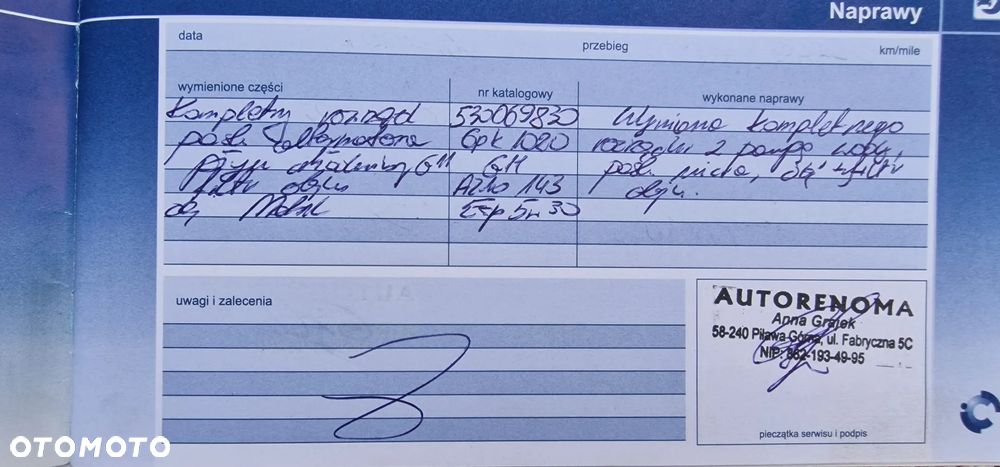 Naprawy
data przebieg km/mile
wymienione części nr katalogowy wykonane naprawy
Kompletny rozrząd 530069830 Wymiana kompletnego
pask. alternatora 6pk 1020 rozrządu z pompą wody,
Płyn GM GM pask.
filtr oleju 143 oleju.
olej Mobil 5w30
uwagi i zalecenia
AUTORENOMA
Anna
58-240 Piława Górna, ul. Fabryczna 5C
NIP: 882-193-49-95
pieczątka serwisu i podpis
OTOMOTO